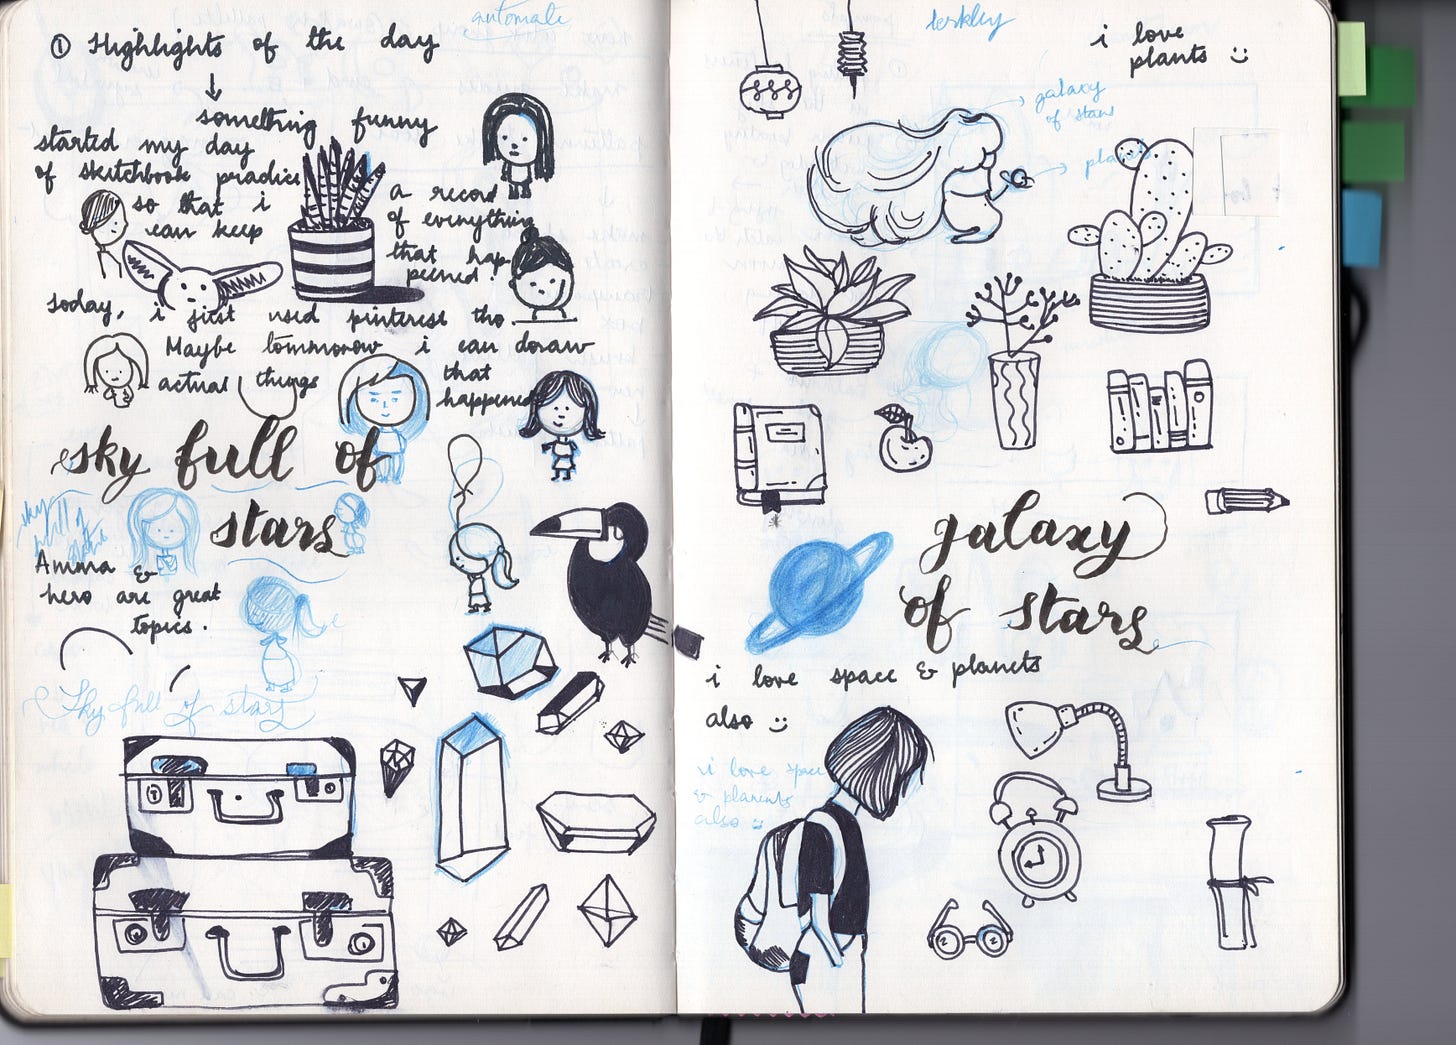 automate
① Highlights of the day
something funny
started my day
of sketchbook practice
so that i
can keep
a record
of everything
that hap-
pened
today, i just used pinterest tho
Maybe tommorow i can doraw
actual things
that
happened
sky full of
stars
sky
full of
Amma &
hero are great
topics.
Sky full of stars
i love
plants :)
galaxy
of stars
planet
galaxy
of stars
i love space & planets
also :)
i love space
& planents
also :)